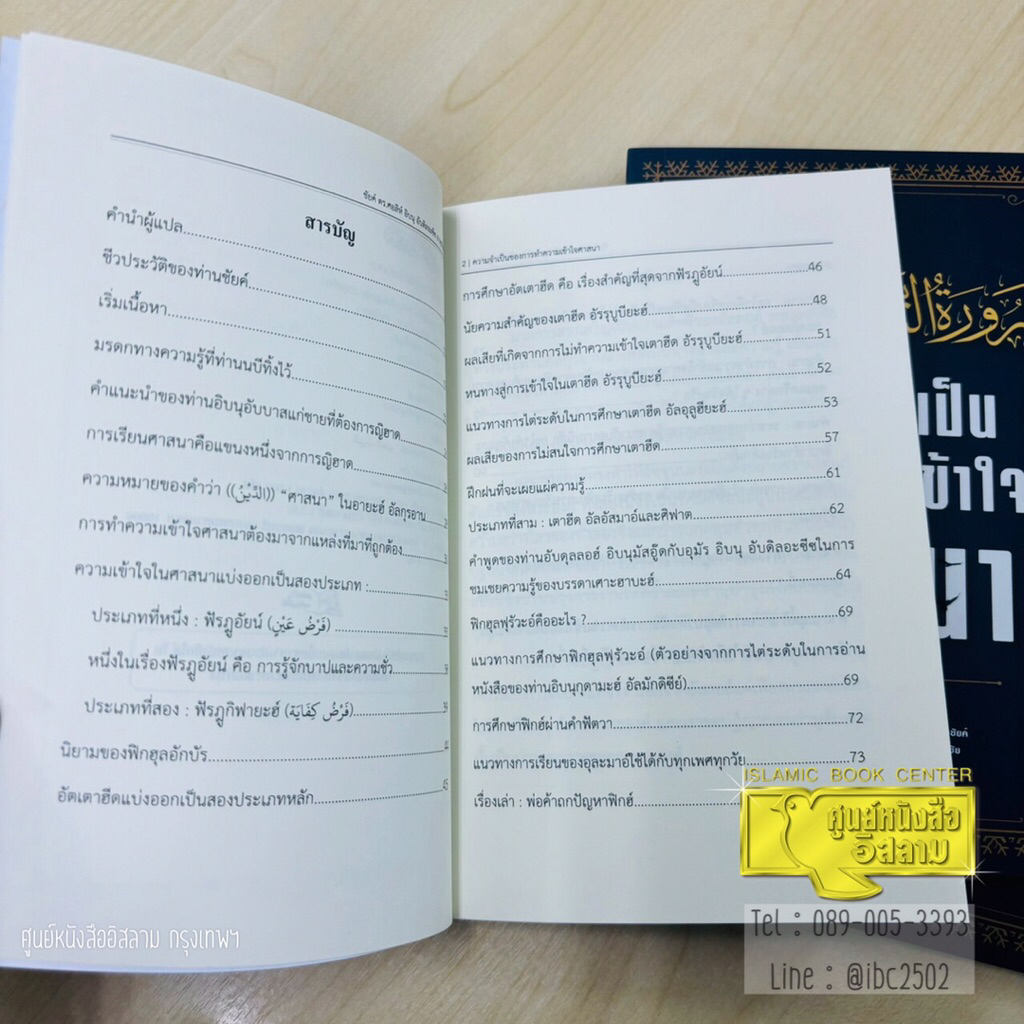 ชัยค์ ดร.ศอลิห์ อิบนุ
สารบัญ
คำนำผู้แปล
ชีวประวัติของท่านชัยค์
เริ่มเนื้อหา
มรดกทางความรู้ที่ท่านนบีทิ้งไว้
คำแนะนำของท่านอิบนุอับบาสแก่ชายที่ต้องการญิฮาด
การเรียนศาสนาคือแขนงหนึ่งจากการญิฮาด
ความหมายของคำว่า ((الدِّيْنُ)) “ศาสนา” ในอายะฮ์ อัลกุรอาน
การทำความเข้าใจศาสนาต้องมาจากแหล่งที่มาที่ถูกต้อง
ความเข้าใจในศาสนาแบ่งออกเป็นสองประเภท :
ประเภทที่หนึ่ง : ฟัรฎูอัยน์ (فَرْضُ عَيْنٍ)
หนึ่งในเรื่องฟัรฎูอัยน์ คือ การรู้จักบาปและความชั่ว
ประเภทที่สอง : ฟัรฎูกิฟายะฮ์ (فَرْضُ كِفَايَة)
นิยามของฟิกฮุลอักบัร
อัตเตาฮีดแบ่งออกเป็นสองประเภทหลัก 45
2 | ความจำเป็นของการทำความเข้าใจศาสนา
การศึกษาอัตเตาฮีด คือ เรื่องสำคัญที่สุดจากฟัรฎูอัยน์ 46
นัยความสำคัญของเตาฮีด อัรรุบูบียะฮ์ 48
ผลเสียที่เกิดจากการไม่ทำความเข้าใจเตาฮีด อัรรุบูบียะฮ์ 51
หนทางสู่การเข้าใจในเตาฮีด อัรรุบูบียะฮ์ 52
แนวทางการไต่ระดับในการศึกษาเตาฮีด อัลอุลูฮียะฮ์ 53
ผลเสียของการไม่สนใจการศึกษาเตาฮีด 57
ฝึกฝนที่จะเผยแผ่ความรู้ 61
ประเภทที่สาม : เตาฮีด อัลอัสมาอ์และศิฟาต 62
คำพูดของท่านอับดุลลอฮ์ อิบนุมัสอู๊ดกับอุมัร อิบนุ อับดิลอะซีซในการ
ชมเชยความรู้ของบรรดาเศาะฮาบะฮ์ 64
ฟิกฮุลฟุรัวะอ์คืออะไร ? 69
แนวทางการศึกษาฟิกฮุลฟุรัวะอ์ (ตัวอย่างจากการไต่ระดับในการอ่าน
หนังสือของท่านอิบนุกุดามะฮ์ อัลมักดิซีย์) 69
การศึกษาฟิกฮ์ผ่านคำฟัตวา 72
แนวทางการเรียนของอุละมาอ์ใช้ได้กับทุกเพศทุกวัย 73
เรื่องเล่า : พ่อค้าถกปัญหาฟิกฮ์
เป็น
ข้าใจ
นา
ISLAMIC BOOK CENTER
ศูนย์หนังสือ
อิสลาม
Tel : 089-005-3393
Line : @ibc2502
ศูนย์หนังสืออิสลาม กรุงเทพฯ